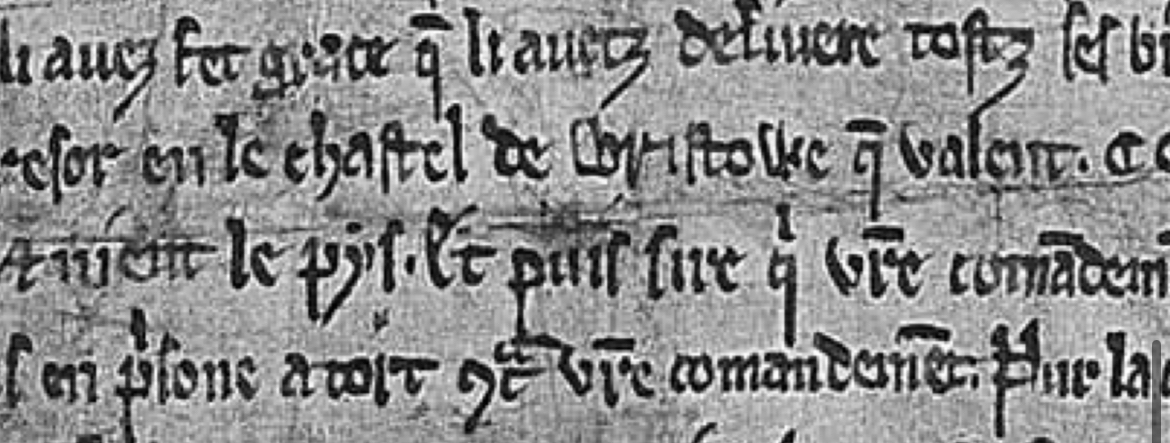 li auez fet grace q̄ li auetz deliuere tostz ses bi
resor en le chastel de Bristowe q̄ valent. CC
le pӱs. Et puis sire qͥ vr̄e comādem
s en pͥsone a toit ꝯtᵃ vr̄e comandemēt. Pur la